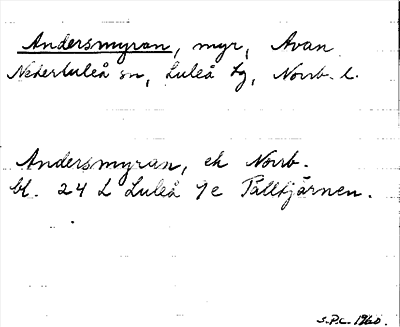 Andersmyran, myr, Avan
Nederluleå sn, Luleå tg, Norrb. l.
Andersmyran, ek Norrb.
bl. 24 L Luleå 7e Talltjärnen.
S.P.L. 1960.